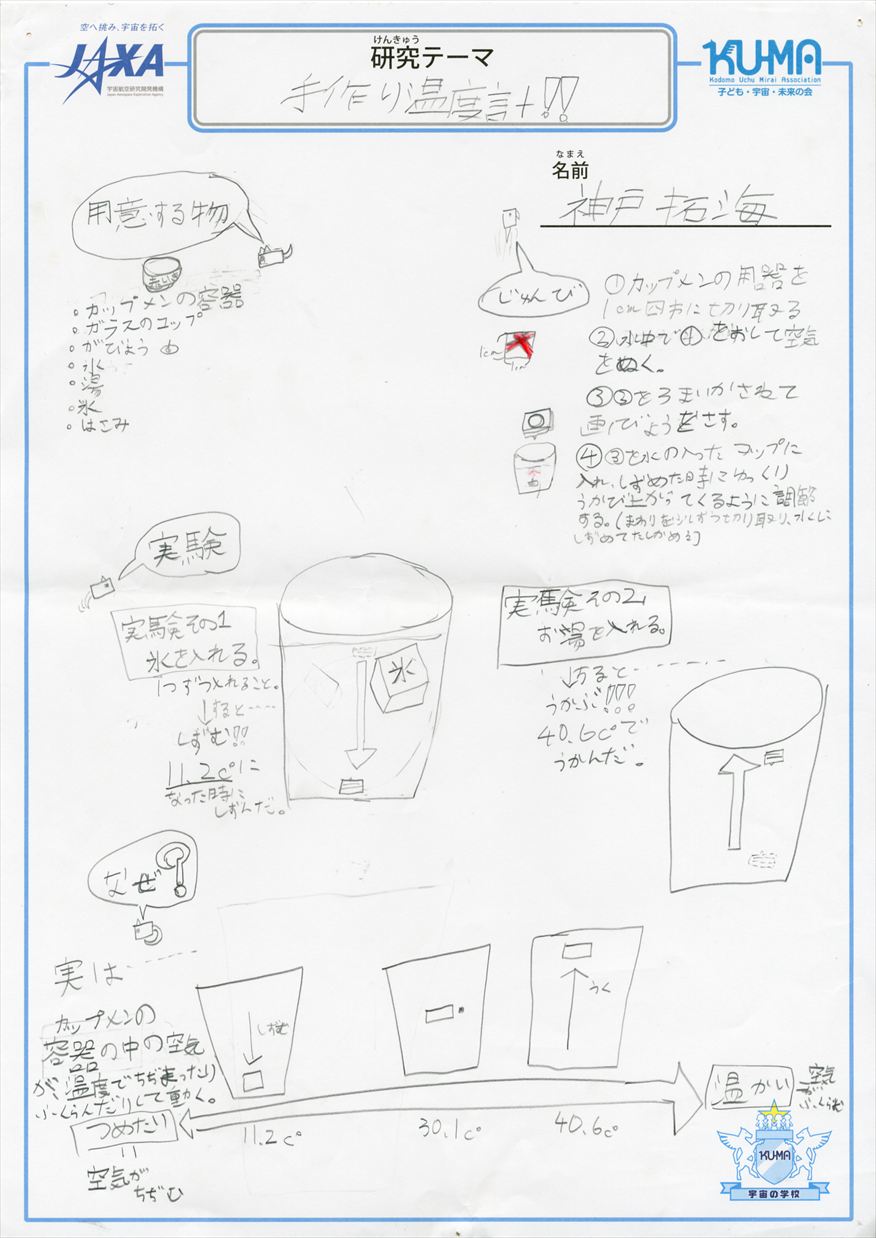 空へ挑み、宇宙を拓く
JAXA
宇宙航空研究開発機構
Japan Aerospace Exploration Agency
けんきゅう
研究テーマ
手作り温度計!!
KU-MA
Kodomo Uchu Mirai Association
子ども・宇宙・未来の会
なまえ
名前
神戸 拓海
用意する物
・カップメンの容器
・ガラスのコップ
・がびょう
・水
・湯
・氷
・はさみ
じゅんび
①カップメンの用器を
1cm四方に切り取る
②水中で①をおして空気
をぬく。
1cm
1cm
③②を3まいかさねて
画びょうをさす。
④③を水の入ったコップに
入れ、しずめた時にゆっくり
うかび上がってくるように調節
する。(まわりを少しずつ切り取り、水に
しずめてたしかめる)
実験
実験その1
氷を入れる。
1つずつ入れること。
↓すると……
しずむ!!
11.2c°に
なった時に
しずんだ。
氷
実験その2
お湯を入れる。
↓すると………
うかぶ!!!
40.6c°で
うかんだ。
なぜ?
実は……
カップメンの
容器の中の空気
が、温度でちぢまったり
ふくらんだりして動く。
しずむ
うく
つめたい
11.2c°
30.1c°
40.6c°
温かい
空気
が
ふくらむ
=
空気が
ちぢむ
KU-MA
宇宙の学校